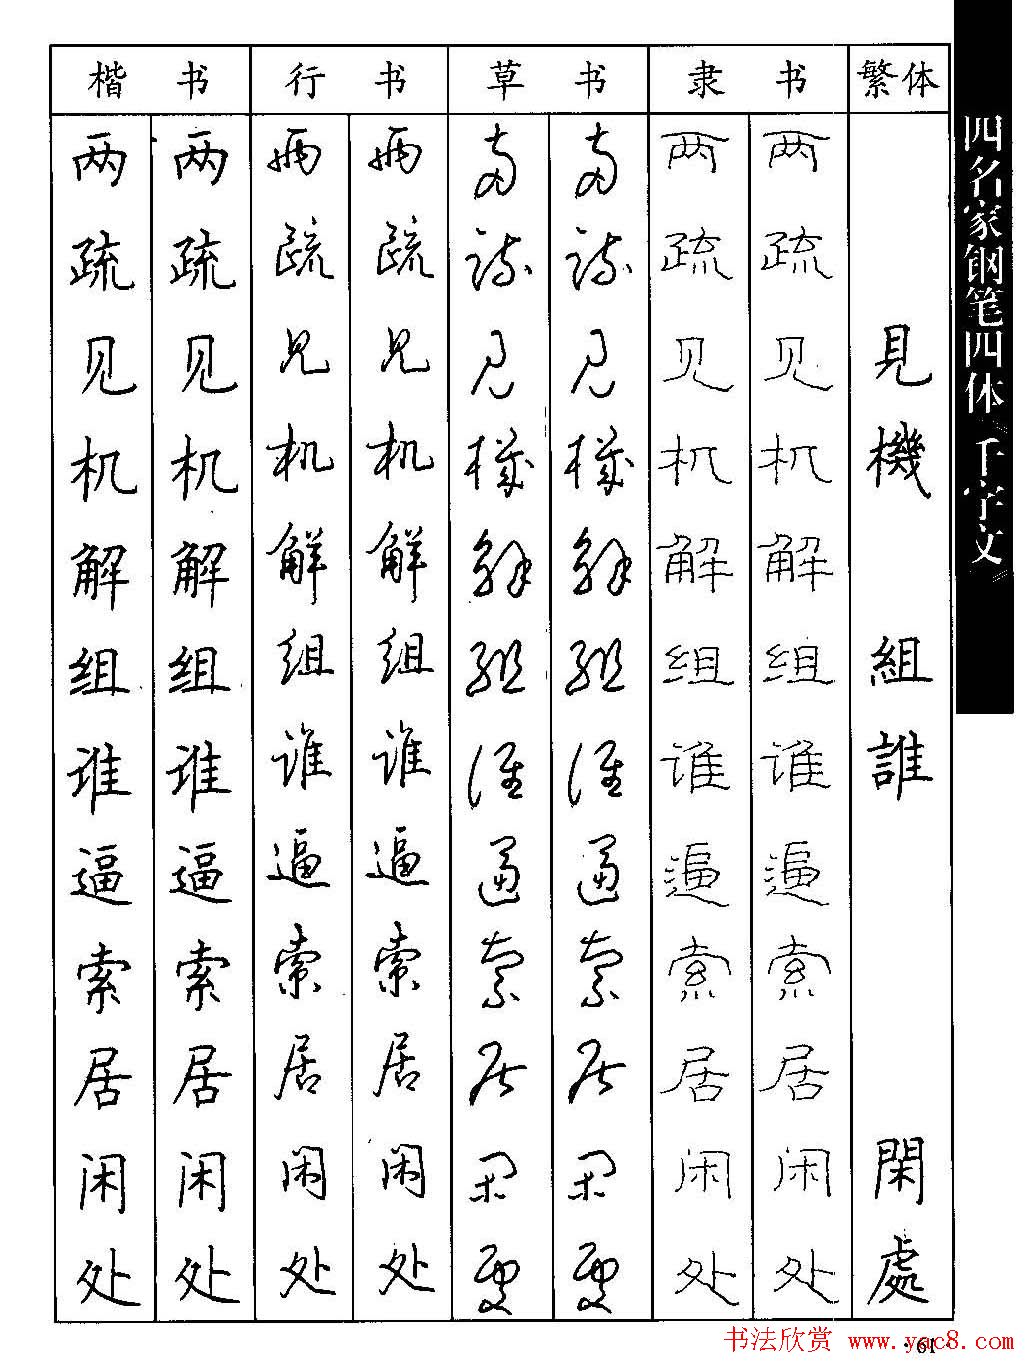 楷书 行书 草书 隶书 繁体
两 两 两 两 两 两 两 两
疏 疏 疏 疏 疏 疏 疏 疏
见 见 见 见 见 见 见 见 見
机 机 机 机 机 机 机 机 機
解 解 解 解 解 解 解 解
组 组 组 组 组 组 组 组 組
谁 谁 谁 谁 谁 谁 谁 谁 誰
逼 逼 逼 逼 逼 逼 逼 逼
索 索 索 索 索 索 索 索
居 居 居 居 居 居 居 居
闲 闲 闲 闲 闲 闲 闲 闲 閑
处 处 处 处 处 处 处 处 處
四名家钢笔四体《千字文》
·61·
书法欣赏 www.yac8.com